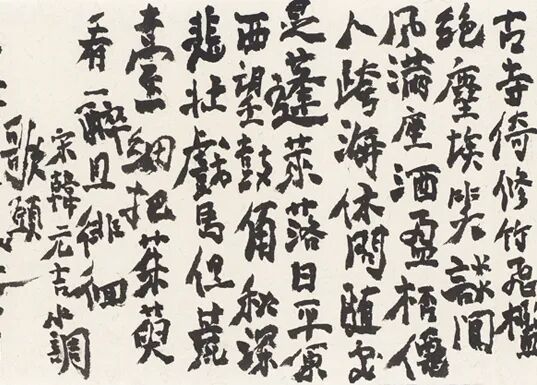 古寺倚修竹飛檻
絕塵埃笑談間
風滿座酒盈杯僊
人跨海休問随處
是蓬萊落日平原
西望鼓角秋深
悲壯戲馬但荒
臺細把茱萸
看一醉且徘徊
宋韓元吉水調
歌頭